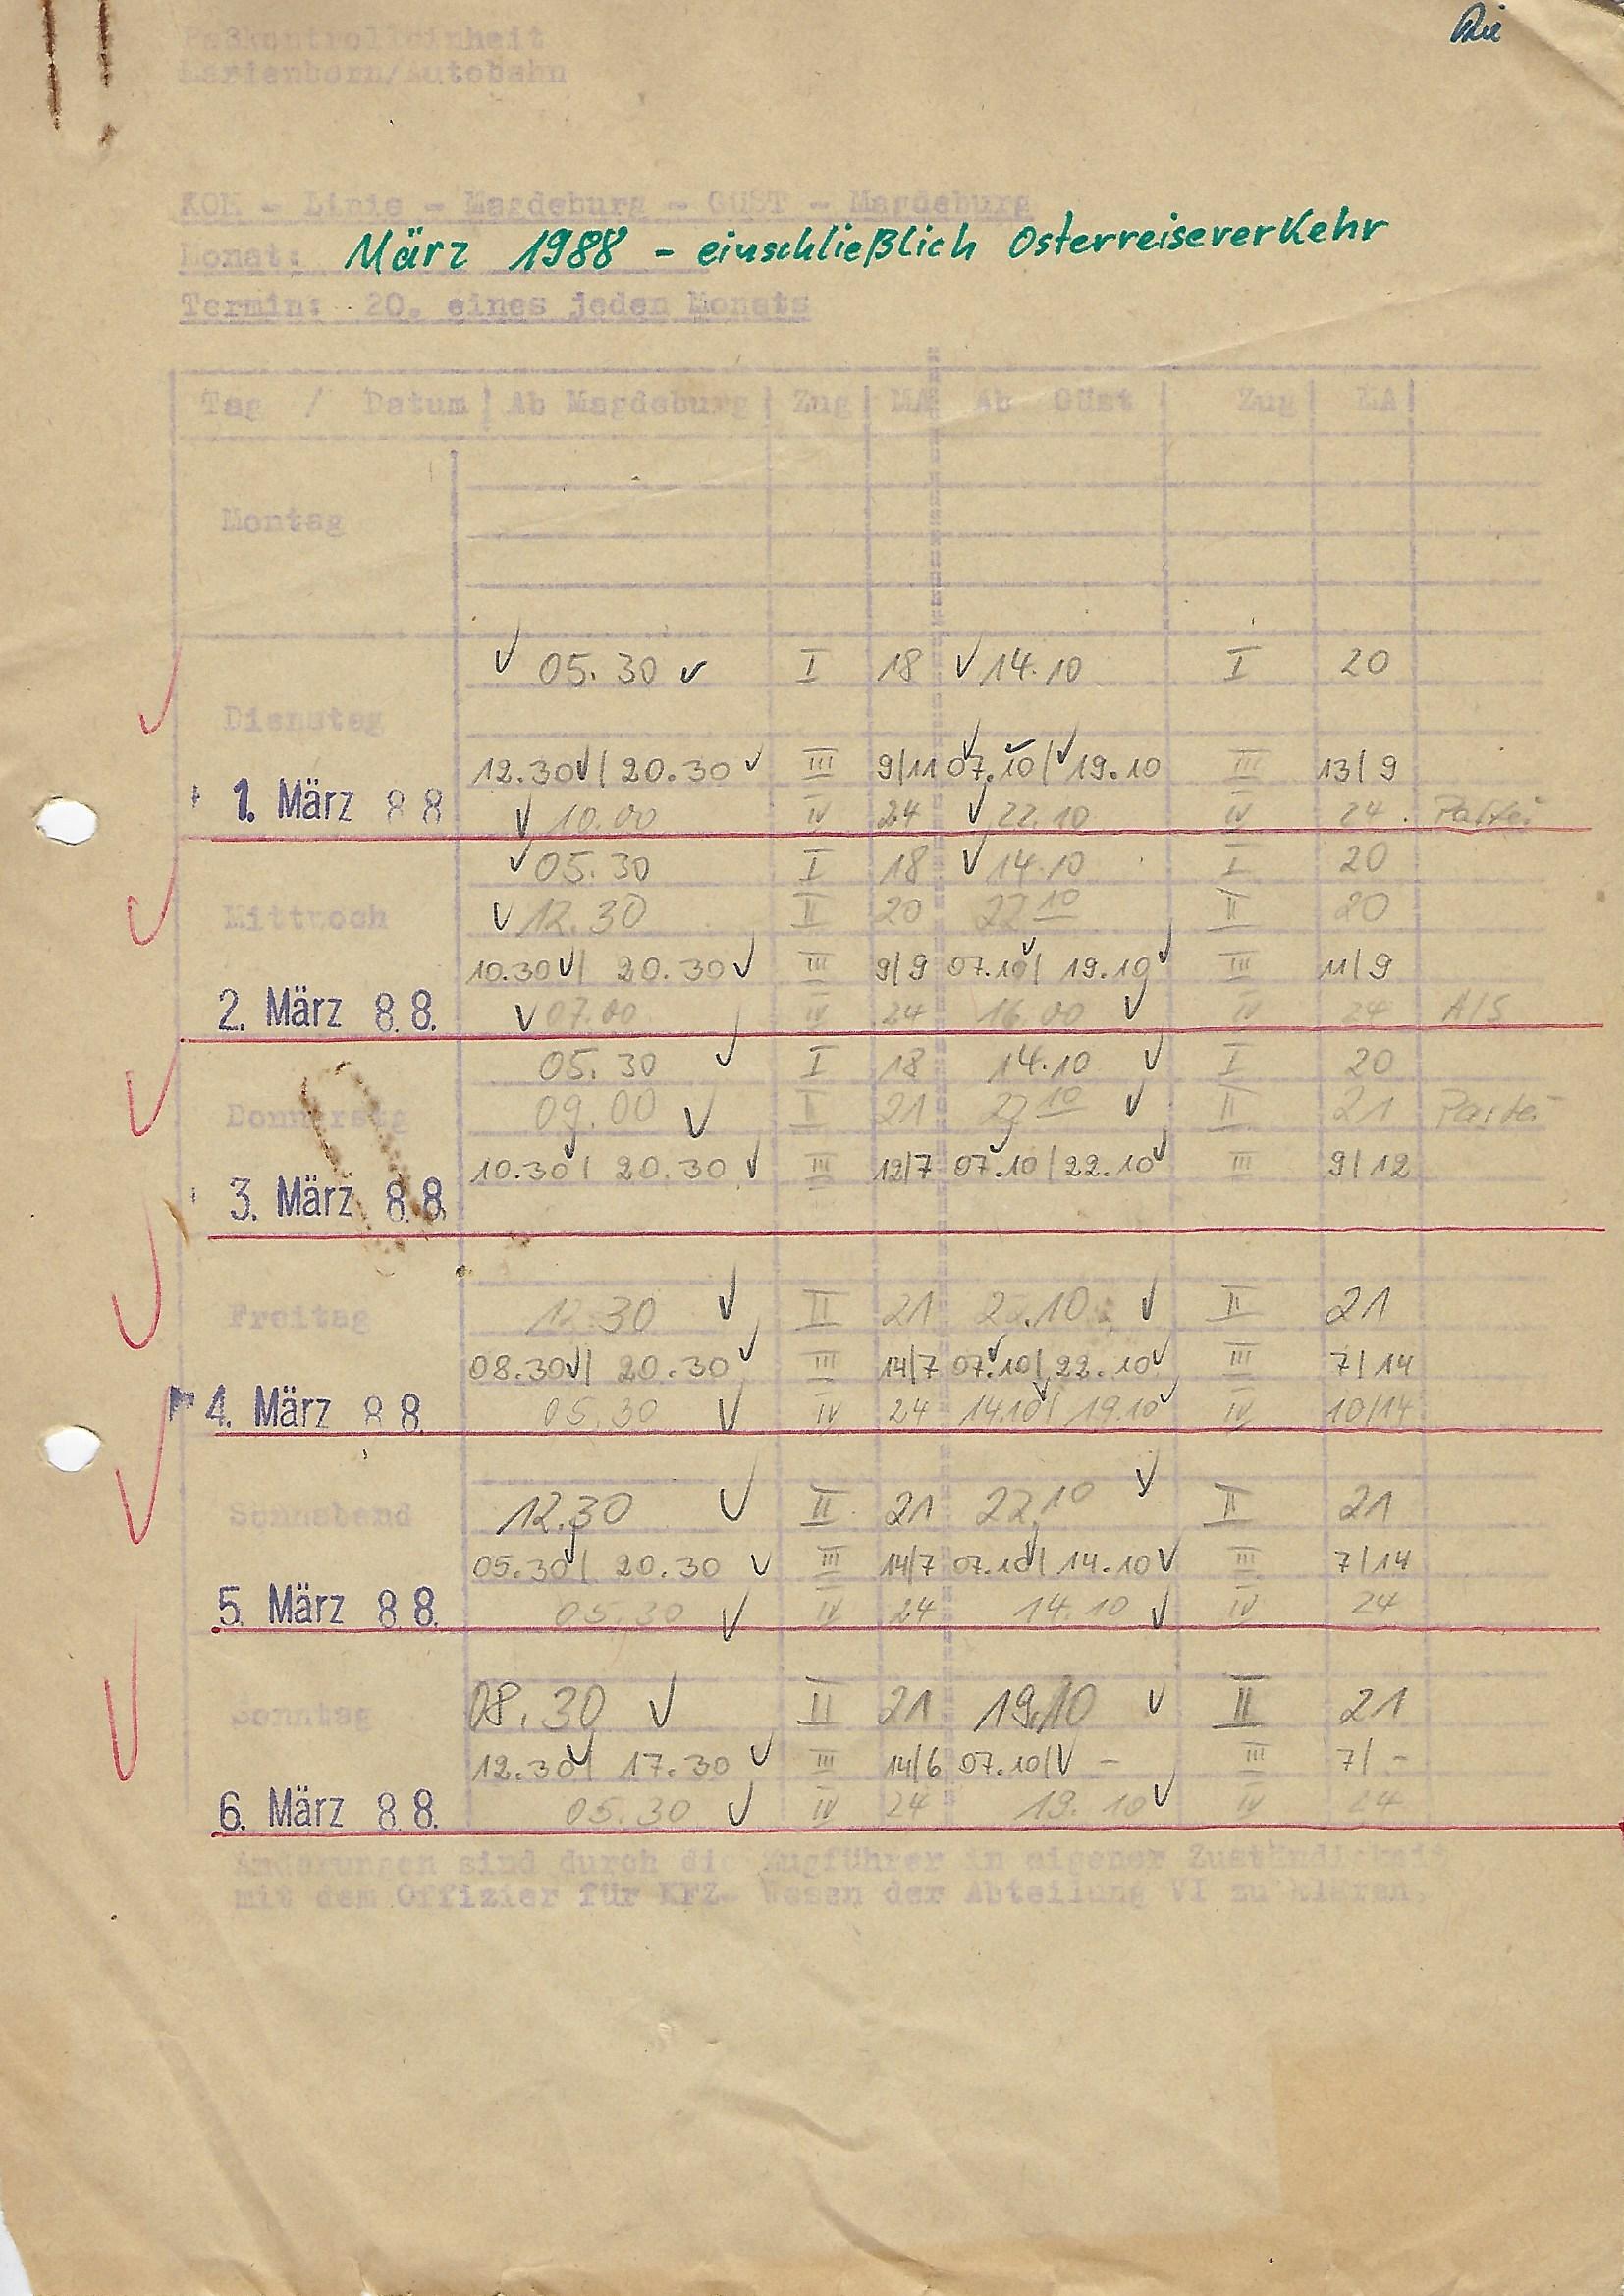 Paßkontrolleinheit
Marienborn/Autobahn
KOM - Linie - Magdeburg - GÜST - Magdeburg
Monat: März 1988 - einschließlich Osterreiseverkehr
Termin: 20. eines jeden Monats
Tag / Datum Ab Magdeburg Zug MA Ab Güst Zug MA
Montag
05.30 I 18 14.10 I 20
Dienstag
12.30 / 20.30 III 9/11 07.10 / 19.10 III 13/9
1. März 88 10.00 IV 24 22.10 IV 24 Partei
05.30 I 18 14.10 I 20
Mittwoch 12.30 II 20 22 10 II 20
10.30 / 20.30 III 9/9 07.10 / 19.10 III 11/9
2. März 88. 07.00 IV 24 16.00 IV 24 A/S
05.30 I 18 14.10 I 20
Donnerstg 09.00 II 21 10 II 21 Partei
10.30 / 20.30 III 12/7 07.10 / 22.10 III 9/12
3. März 88.
Freitag 12.30 II 21 22.10 II 21
08.30 / 20.30 III 14/7 07.10 / 22.10 III 7/14
4. März 88. 05.30 IV 24 14.10 / 19.10 IV 10/14
Sonnabend 12.30 II 21 22.10 II 21
05.30 / 20.30 III 14/7 07.10 / 14.10 III 7/14
5. März 88. 05.30 IV 24 14.10 IV 24
Sonntag 08.30 II 21 19.10 II 21
12.30 / 17.30 III 14/6 07.10 / - III 7/-
6. März 88. 05.30 IV 24 19.10 IV 24
Änderungen sind durch die Zugführer in eigener Zuständigkeit
mit dem Offizier für KFZ- Wesen der Abteilung VI zu klären.